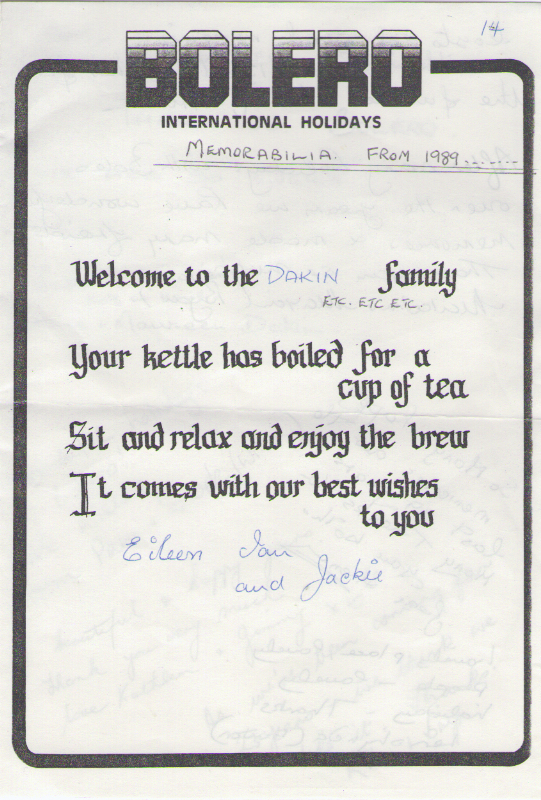 14
BOLERO
INTERNATIONAL HOLIDAYS
MEMORABILIA. FROM 1989.......
Welcome to the DAKIN family
ETC. ETC ETC.
Your kettle has boiled for a
cup of tea
Sit and relax and enjoy the brew
It comes with our best wishes
to you
Eileen Ian
and Jackie